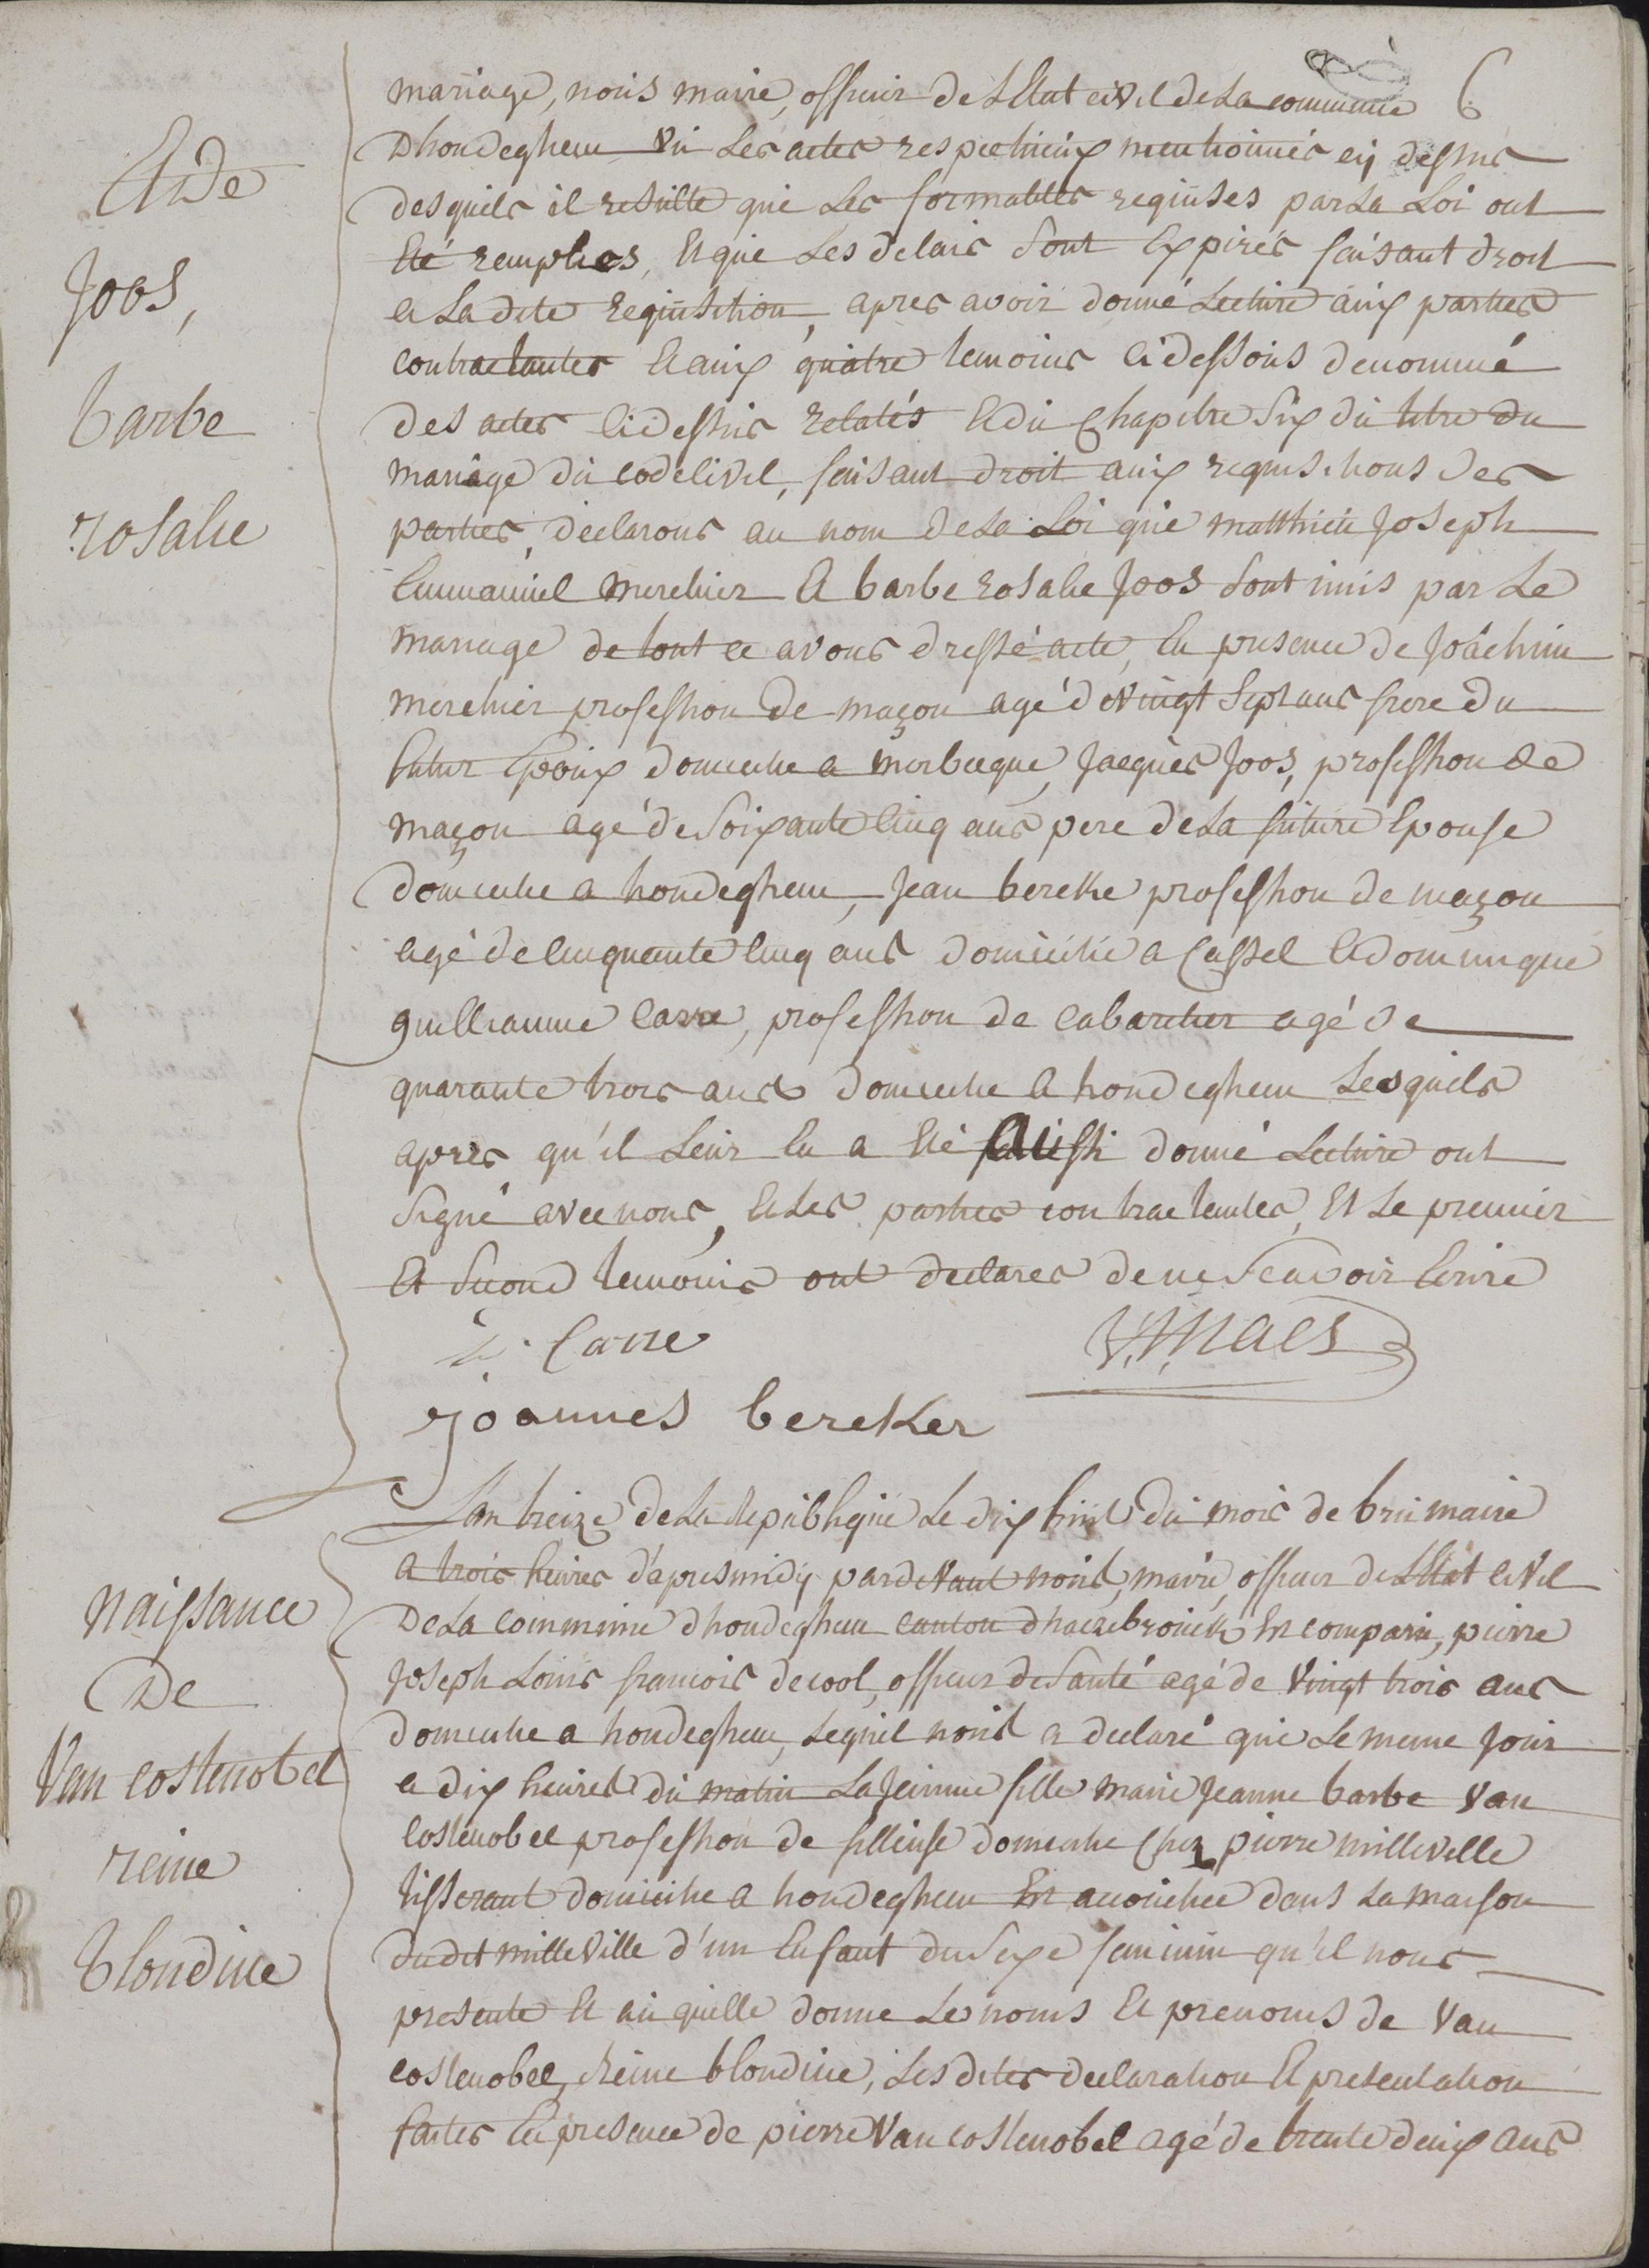 6
mariage, nous maire, officier de L'Etat civil de La commune
Dhondeghem vu Les actes respectieux mentionnés cy dessus
desquels il resulte que Les formalités requises par La Loi ont
Eté remplies, Et que Les delais sont Expirés faisant droit
a La dite requisition, apres avoir donné Lecture aux parties
contractantes Et aux quatre temoins ci dessous denommé
des actes ci dessus relatés Et du Chapitre Six du titre du
mariage du code civil, faisant droit aux requisitions des
parties, declarons au nom de La Loi que matthieu Joseph
Emmanuel merchier Et barbe rosalie Joos sont unis par Le
mariage de tout ce avons dressé acte, En presence de Joachim
merchier profession de maçon agé de vingt Sept ans frere du
futur Epoux domicilie a morbecque, Jacques Joos, profession de
maçon agé de Soixante Cinq ans pere de La future Epouse
domicilie a hondeghem, Jean bereke profession de maçon
agé de Cinquante Cinq ans domicilié a Cassel Et dominique
guilliaume Carre, profession de Cabaretier agé de
quarante trois ans domicilie a hondeghem Lesquels
apres qu'il Leur En a Eté aussi donné Lecture ont
Signé avec nous, Et Les parties contractantes, Et Le premier
Et Second temoins ont declarés de ne Scavoir Ecrire
Carre
V. Maes
joannes bereker
Et de
Joos,
barbe
rosalie
L'an treize de La Republique Le dix huit du mois de brumaire
a trois heures d'apres midy pardevant nous, maire, officier de L'Etat civil
De La commune d'hondeghem canton d'hazebrouck Est comparu, pierre
Joseph Louis francois decool, officier de Santé agé de vingt trois ans
domicilie a hondeghem, Lequel nous a declaré que Le meme Jour
a dix heures du matin La Jeunne fille marie Jeanne barbe Van
Costenobel profession de filleuse domicilie Chez pierre milleville
tisserant domicilie a hondeghem Est accouchée dans La maison
dudit milleville d'un Enfant du Sexe feminin qu'il nous
presente Et au quelle donne Les noms Et prenoms de Van
costenobel, Reine blondine, Les dites declaration Et presentation
faites En presence de pierre Van costenobel agé de trente deux ans
naissance
De
Van costenobel
reine
blondine